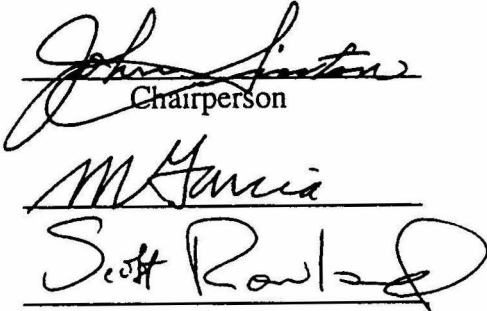 John Sinton
Chairperson
M Garcia
Scott Rowland